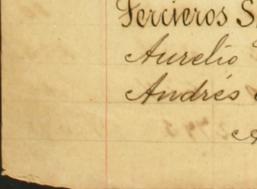 Tercieros S
Aurelio
Andrés